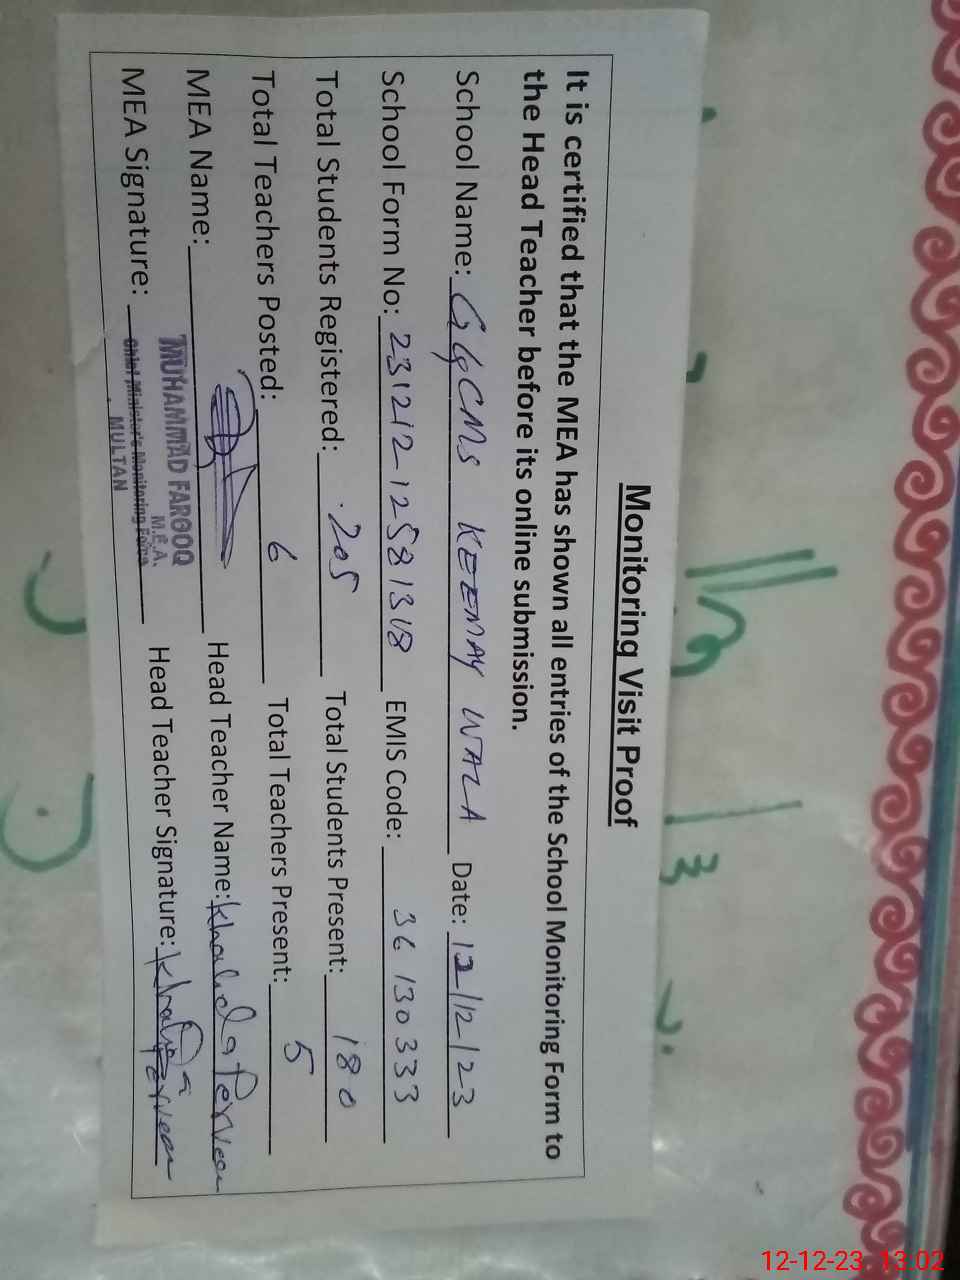 Monitoring Visit Proof
It is certified that the MEA has shown all entries of the School Monitoring Form to
the Head Teacher before its online submission.
School Name: GGCMS KEEMAY WALA Date: 12/12/23
School Form No: 231212-12581318 EMIS Code: 36130333
Total Students Registered: 205 Total Students Present: 180
Total Teachers Posted: 6 Total Teachers Present: 5
MEA Name: Head Teacher Name: Khalida Perveen
MUHAMMAD FAROOQ
M.E.A.
MEA Signature: Head Teacher Signature: Khalida Perveen
Chief Minister's Monitoring Force
MULTAN
12-12-23 13:02